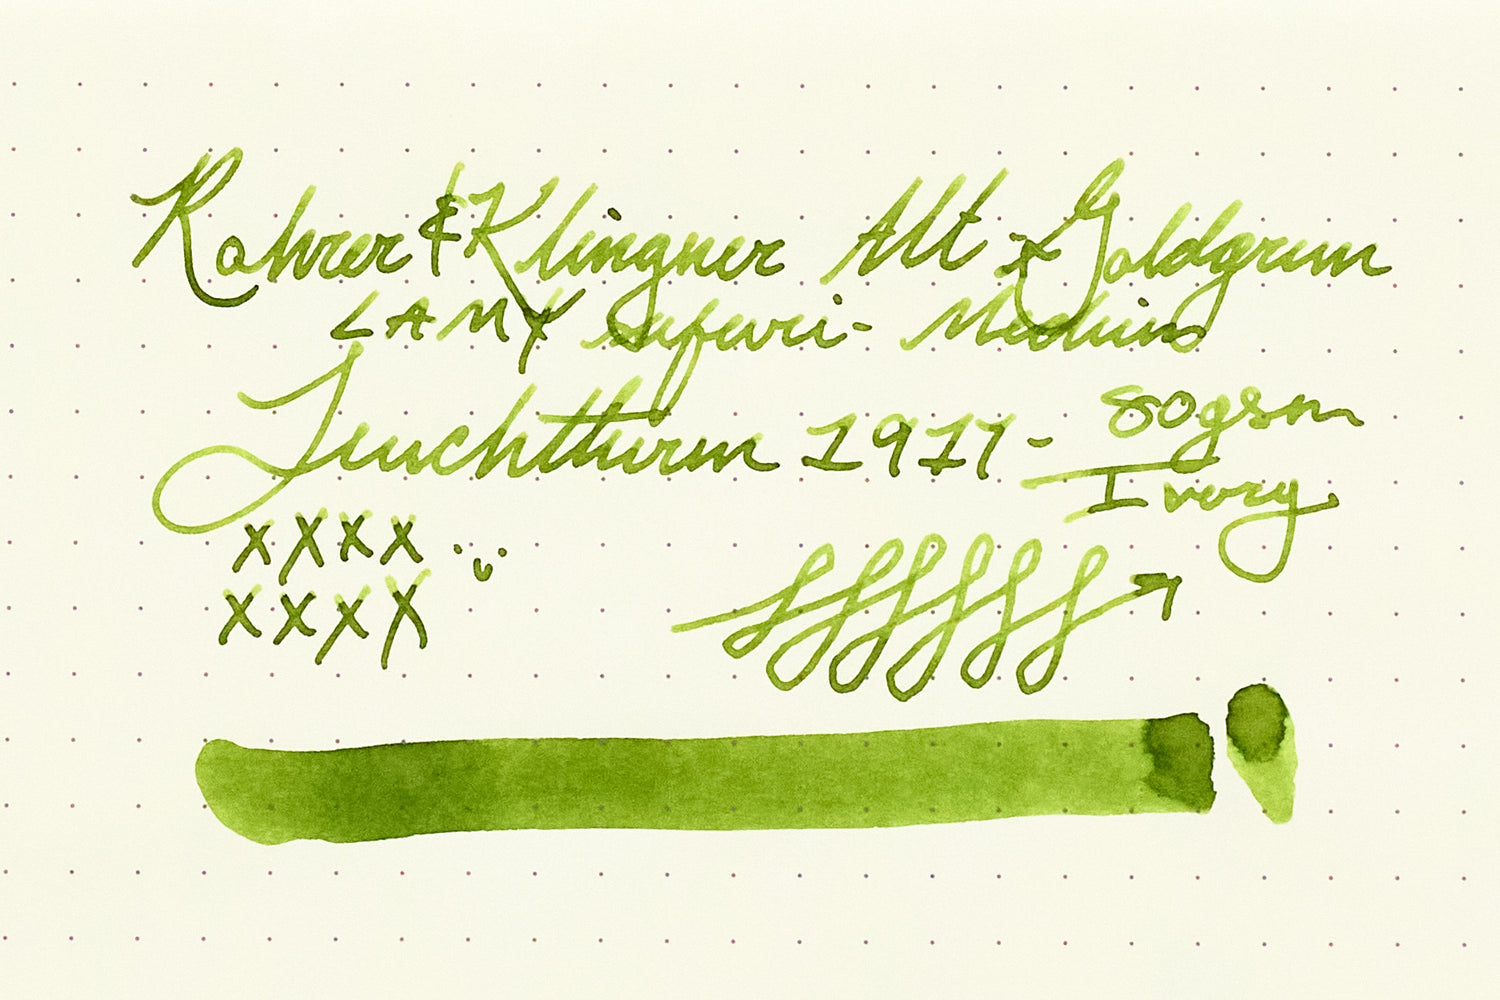 Rohrer & Klingner Alt-Goldgrun
LAMY Safari - Medium
Leuchtturm 1917 - 80gsm
Ivory
xxxx
xxxx